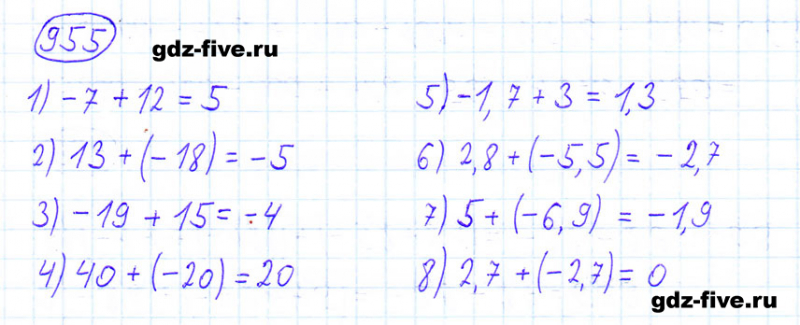 955
gdz-five.ru
1) -7 + 12 = 5
2) 13 + (-18) = -5
3) -19 + 15 = -4
4) 40 + (-20) = 20
5) -1,7 + 3 = 1,3
6) 2,8 + (-5,5) = -2,7
7) 5 + (-6,9) = -1,9
8) 2,7 + (-2,7) = 0
gdz-five.ru